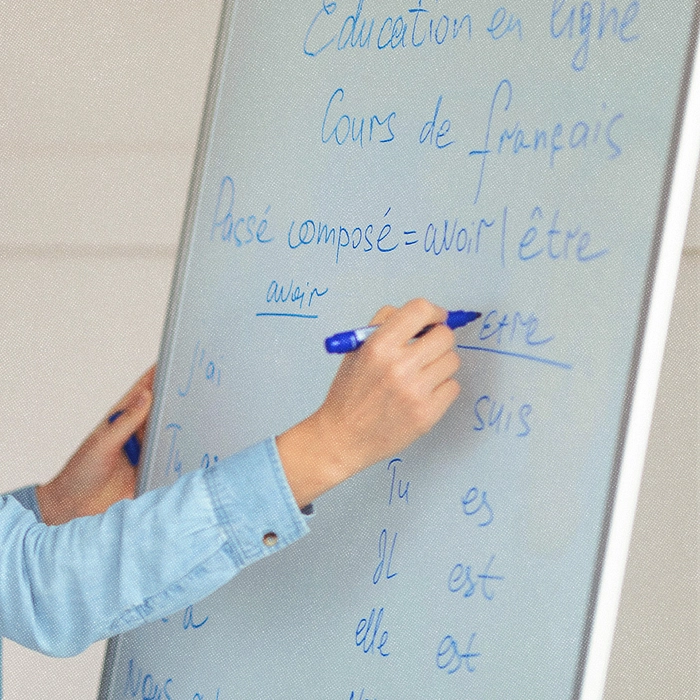 Education en ligne
Cours de français
Passé composé = avoir | être
avoir
être
J'ai
suis
Tu
Tu es
Il est
a
elle est
Nous